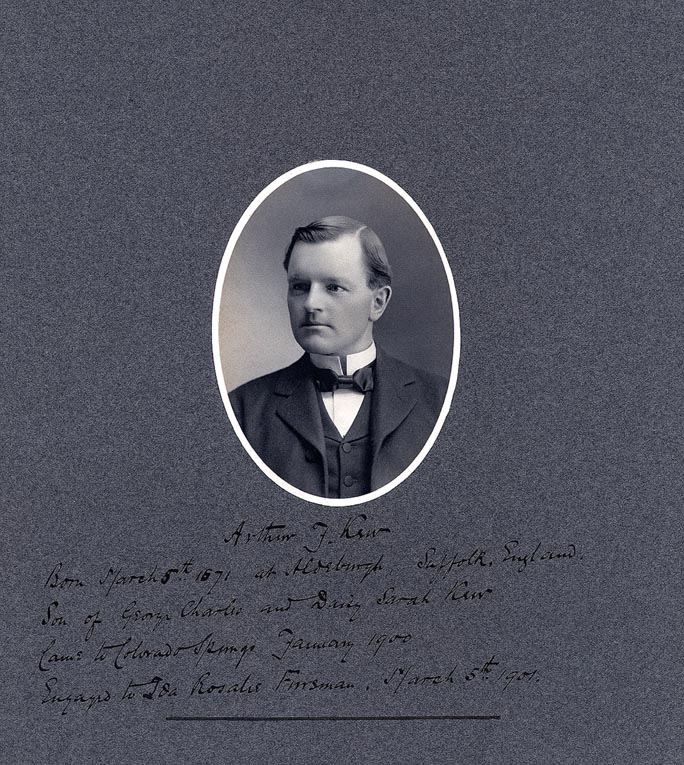 Arthur J. Kew
Born March 5th 1871 at Aldeburgh Suffolk, England.
Son of George Charles and Daisy Sarah Kew
Came to Colorado Springs January 1900
Engaged to Ida Rosalie March 5th 1901.